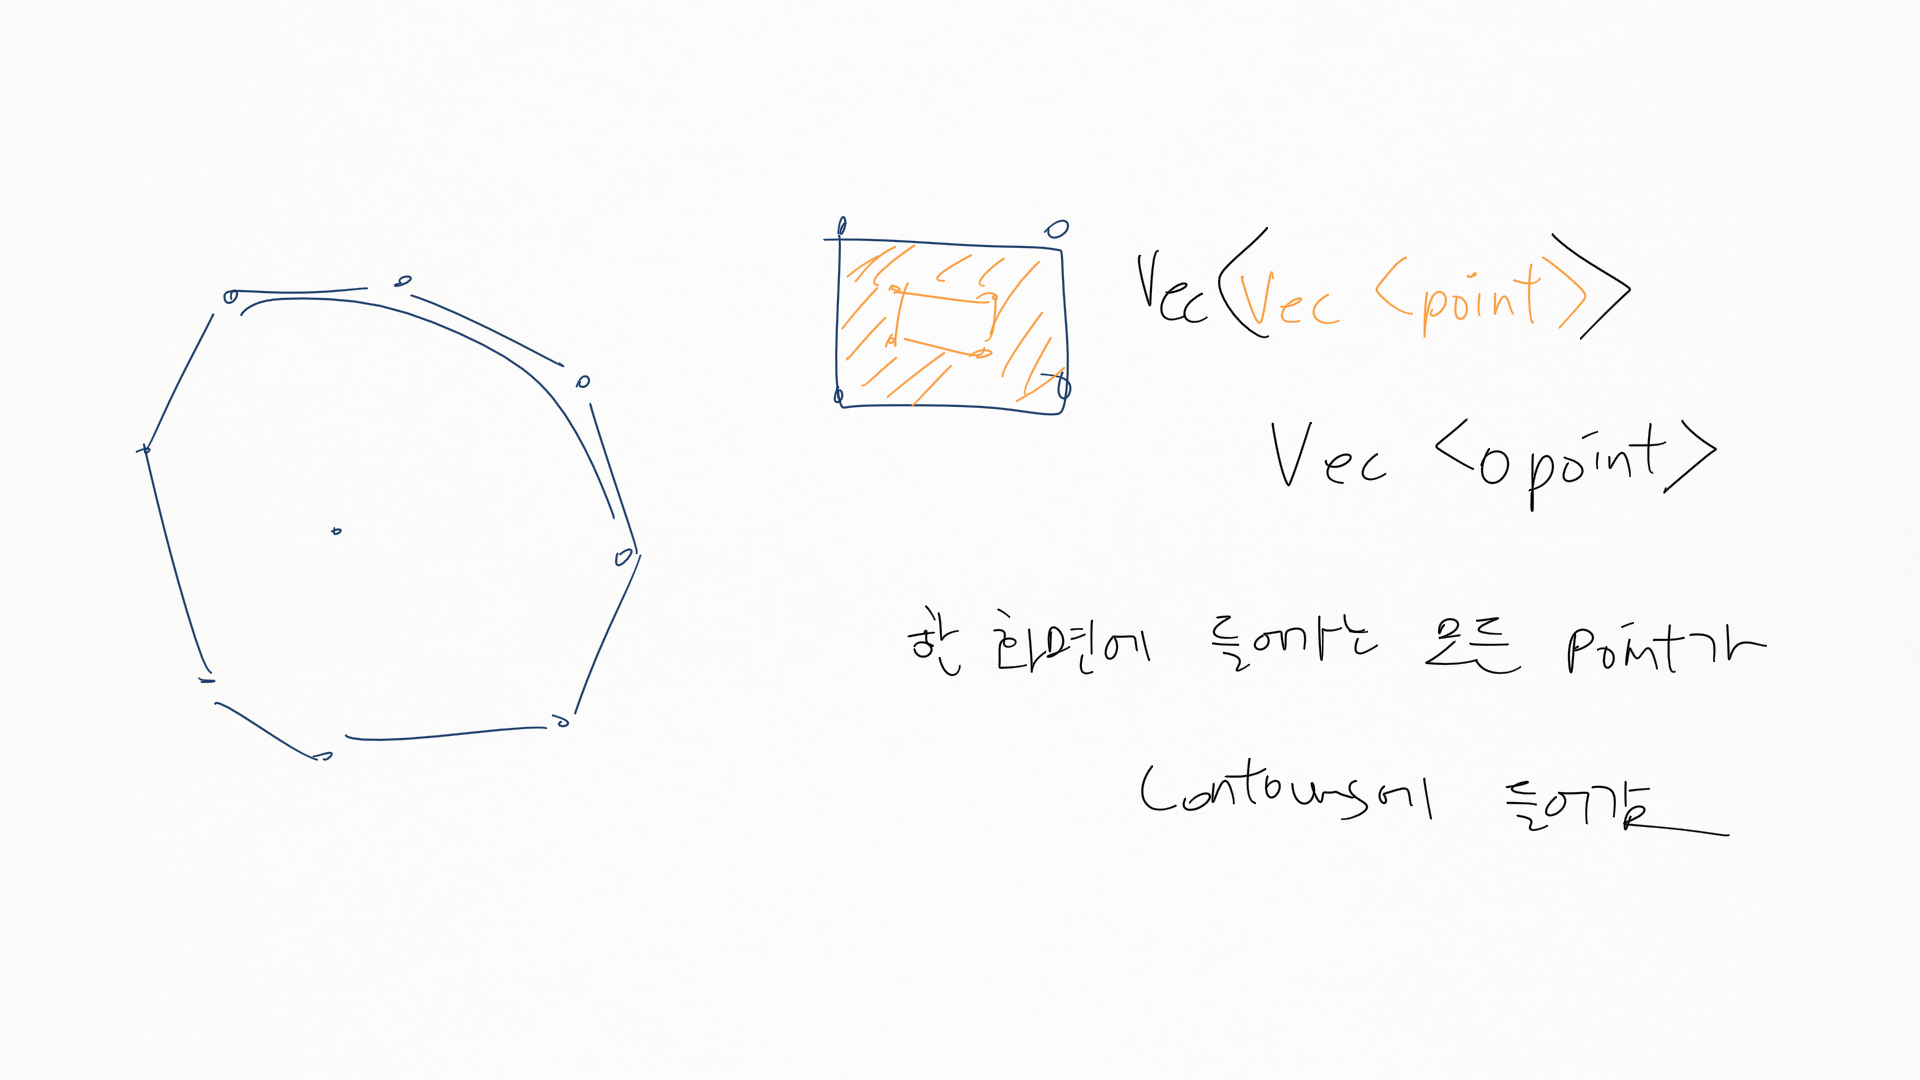 Vec<Vec <point>>
Vec <o point>
한 화면에 들어가는 모든 point가
Contours에 들어감